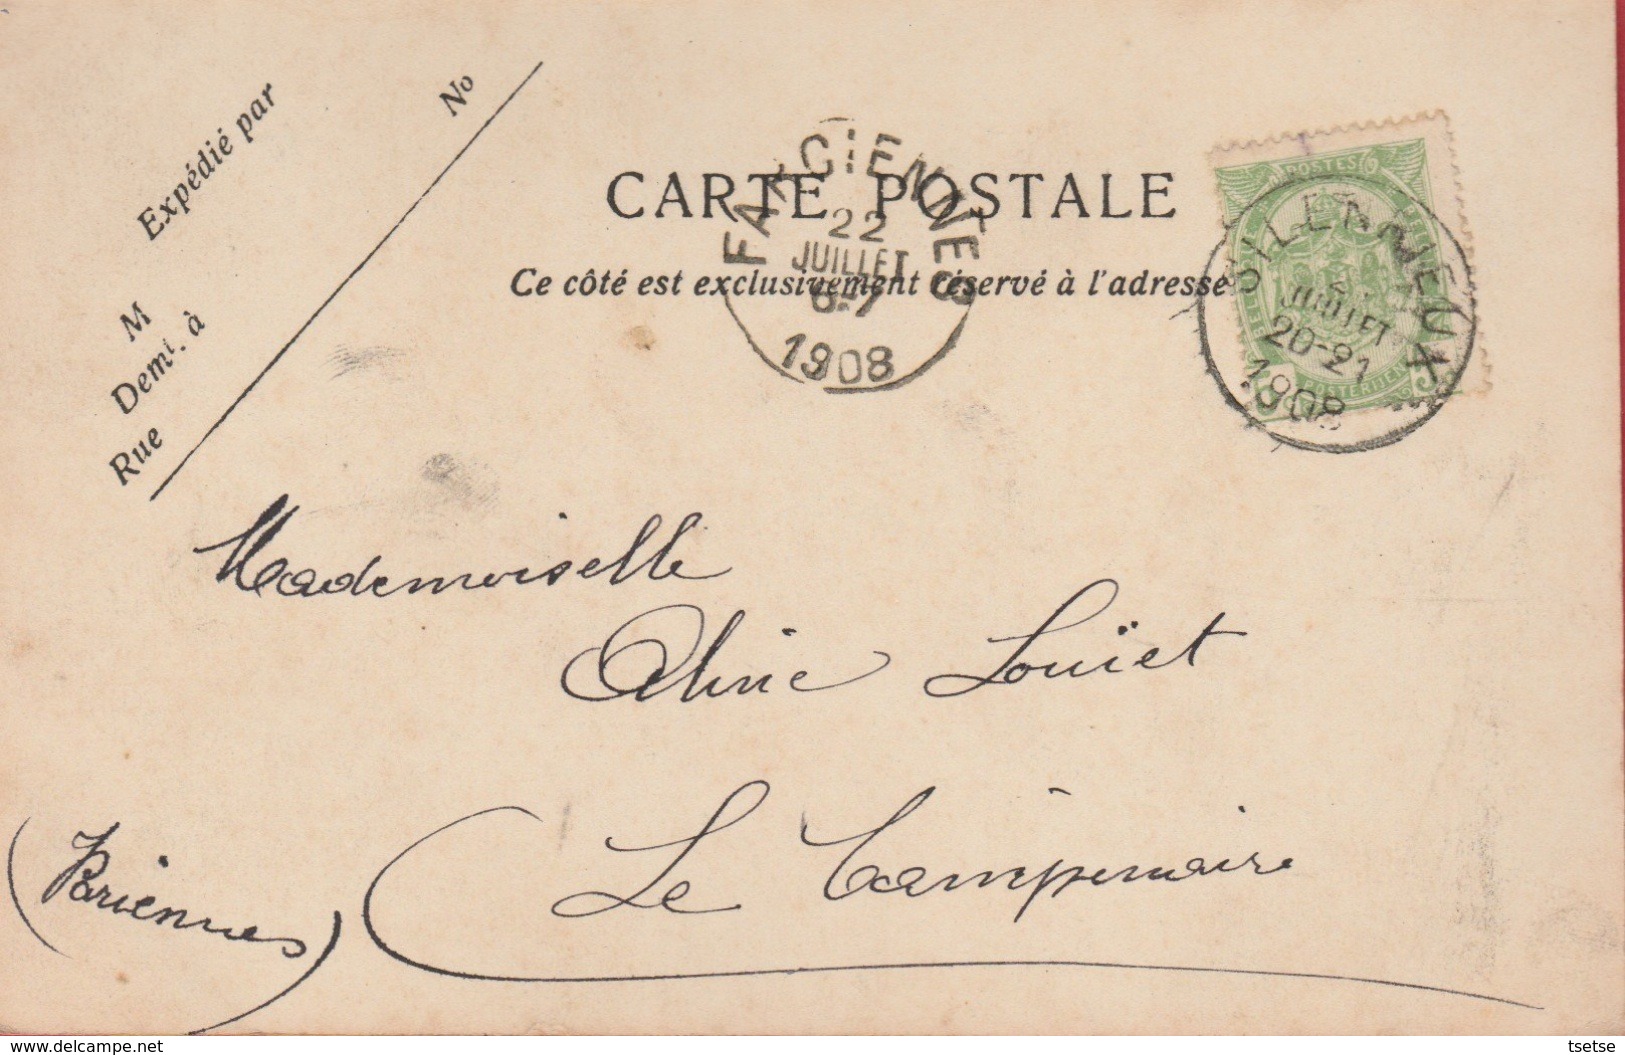 Expédié par
No
M
Demt. à
Rue
CARTE POSTALE
Ce côté est exclusivement réservé à l'adresse
FARCIENNES
22
JUILLET
6-7
1908
POSTES
SILENRIEUX
JUILLET
20-21
1908
POSTERIJEN
Mademoiselle
Aline Louïet
Le Campinaire
(Pariennes)
www.delcampe.net
tsetse